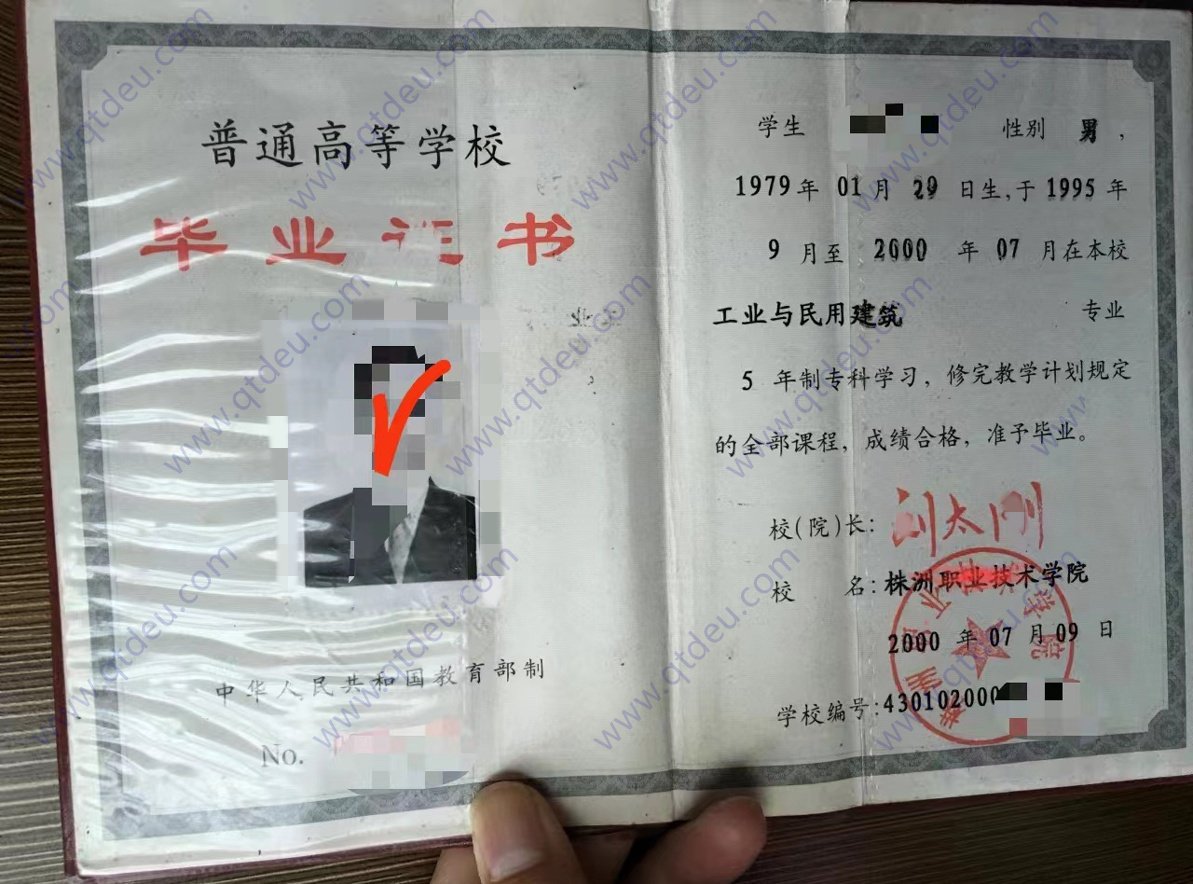 普通高等学校
毕业证书
中华人民共和国教育部制
No.
学生 性别 男,
1979年 01 月 29 日生,于 1995 年
9 月至 2000 年 07 月在本校
工业与民用建筑 专业
5 年制专科学习，修完教学计划规定
的全部课程，成绩合格，准予毕业。
校(院)长: 刘太刚
校 名: 株洲职业技术学院
2000 年 07 月 09 日
学校编号: 430102000
www.qtdeu.com